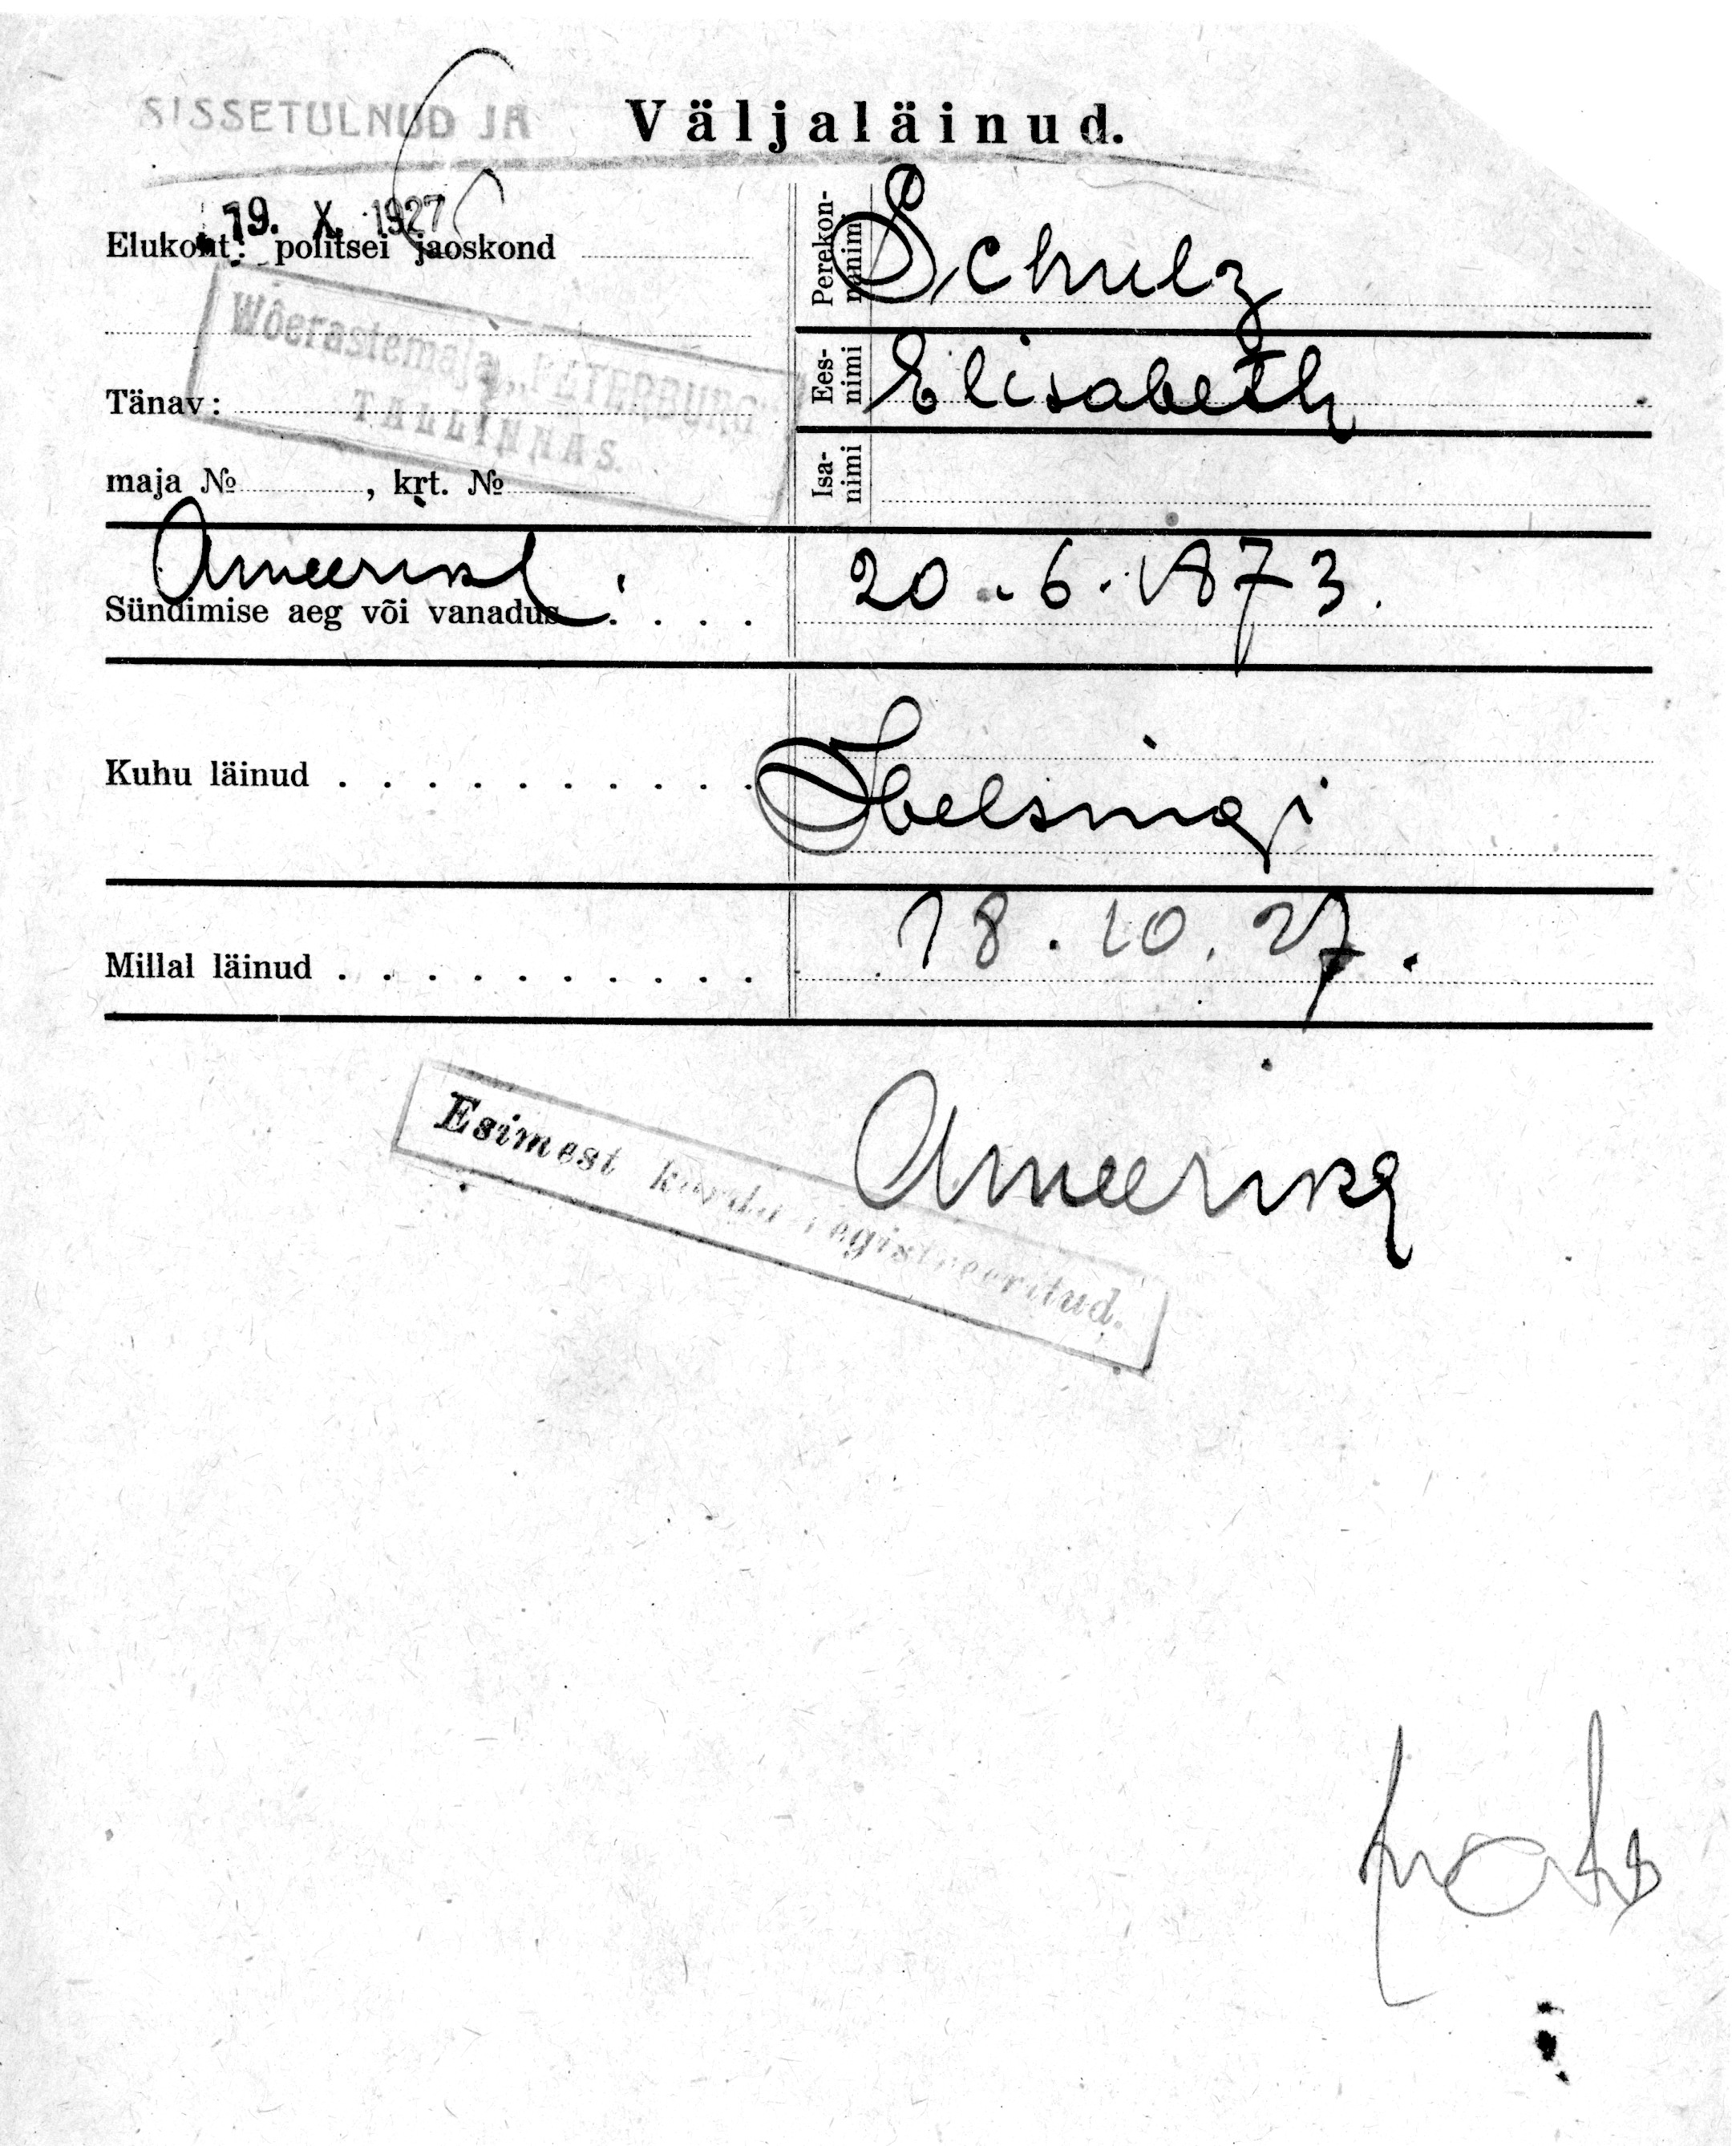 SISSETULNUD JA Väljaläinud.
19. X. 1927
Elukoht: politsei jaoskond
Wõerastemaja „PETERBURG“
TALLINNAS.
Tänav:
maja № , krt. №
Perekon-
nanimi
Schulz
Ees-
nimi
Elisabeth
Isa-
nimi
Ameerika
Sündimise aeg või vanadus . . . . .
20.6.1873.
Kuhu läinud . . . . . . . . . .
Helsingi
Millal läinud . . . . . . . . . .
18.10.27.
Ameerika
Esimest korda registreeritud.